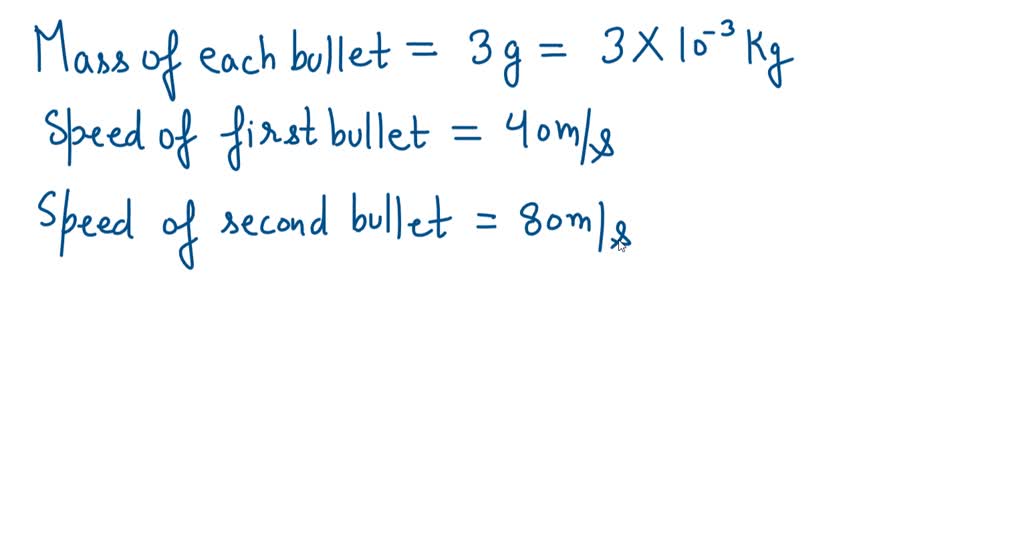 Mass of each bullet = 3 g = 3 × 10⁻³ Kg
Speed of first bullet = 40 m/s
Speed of second bullet = 80 m/s